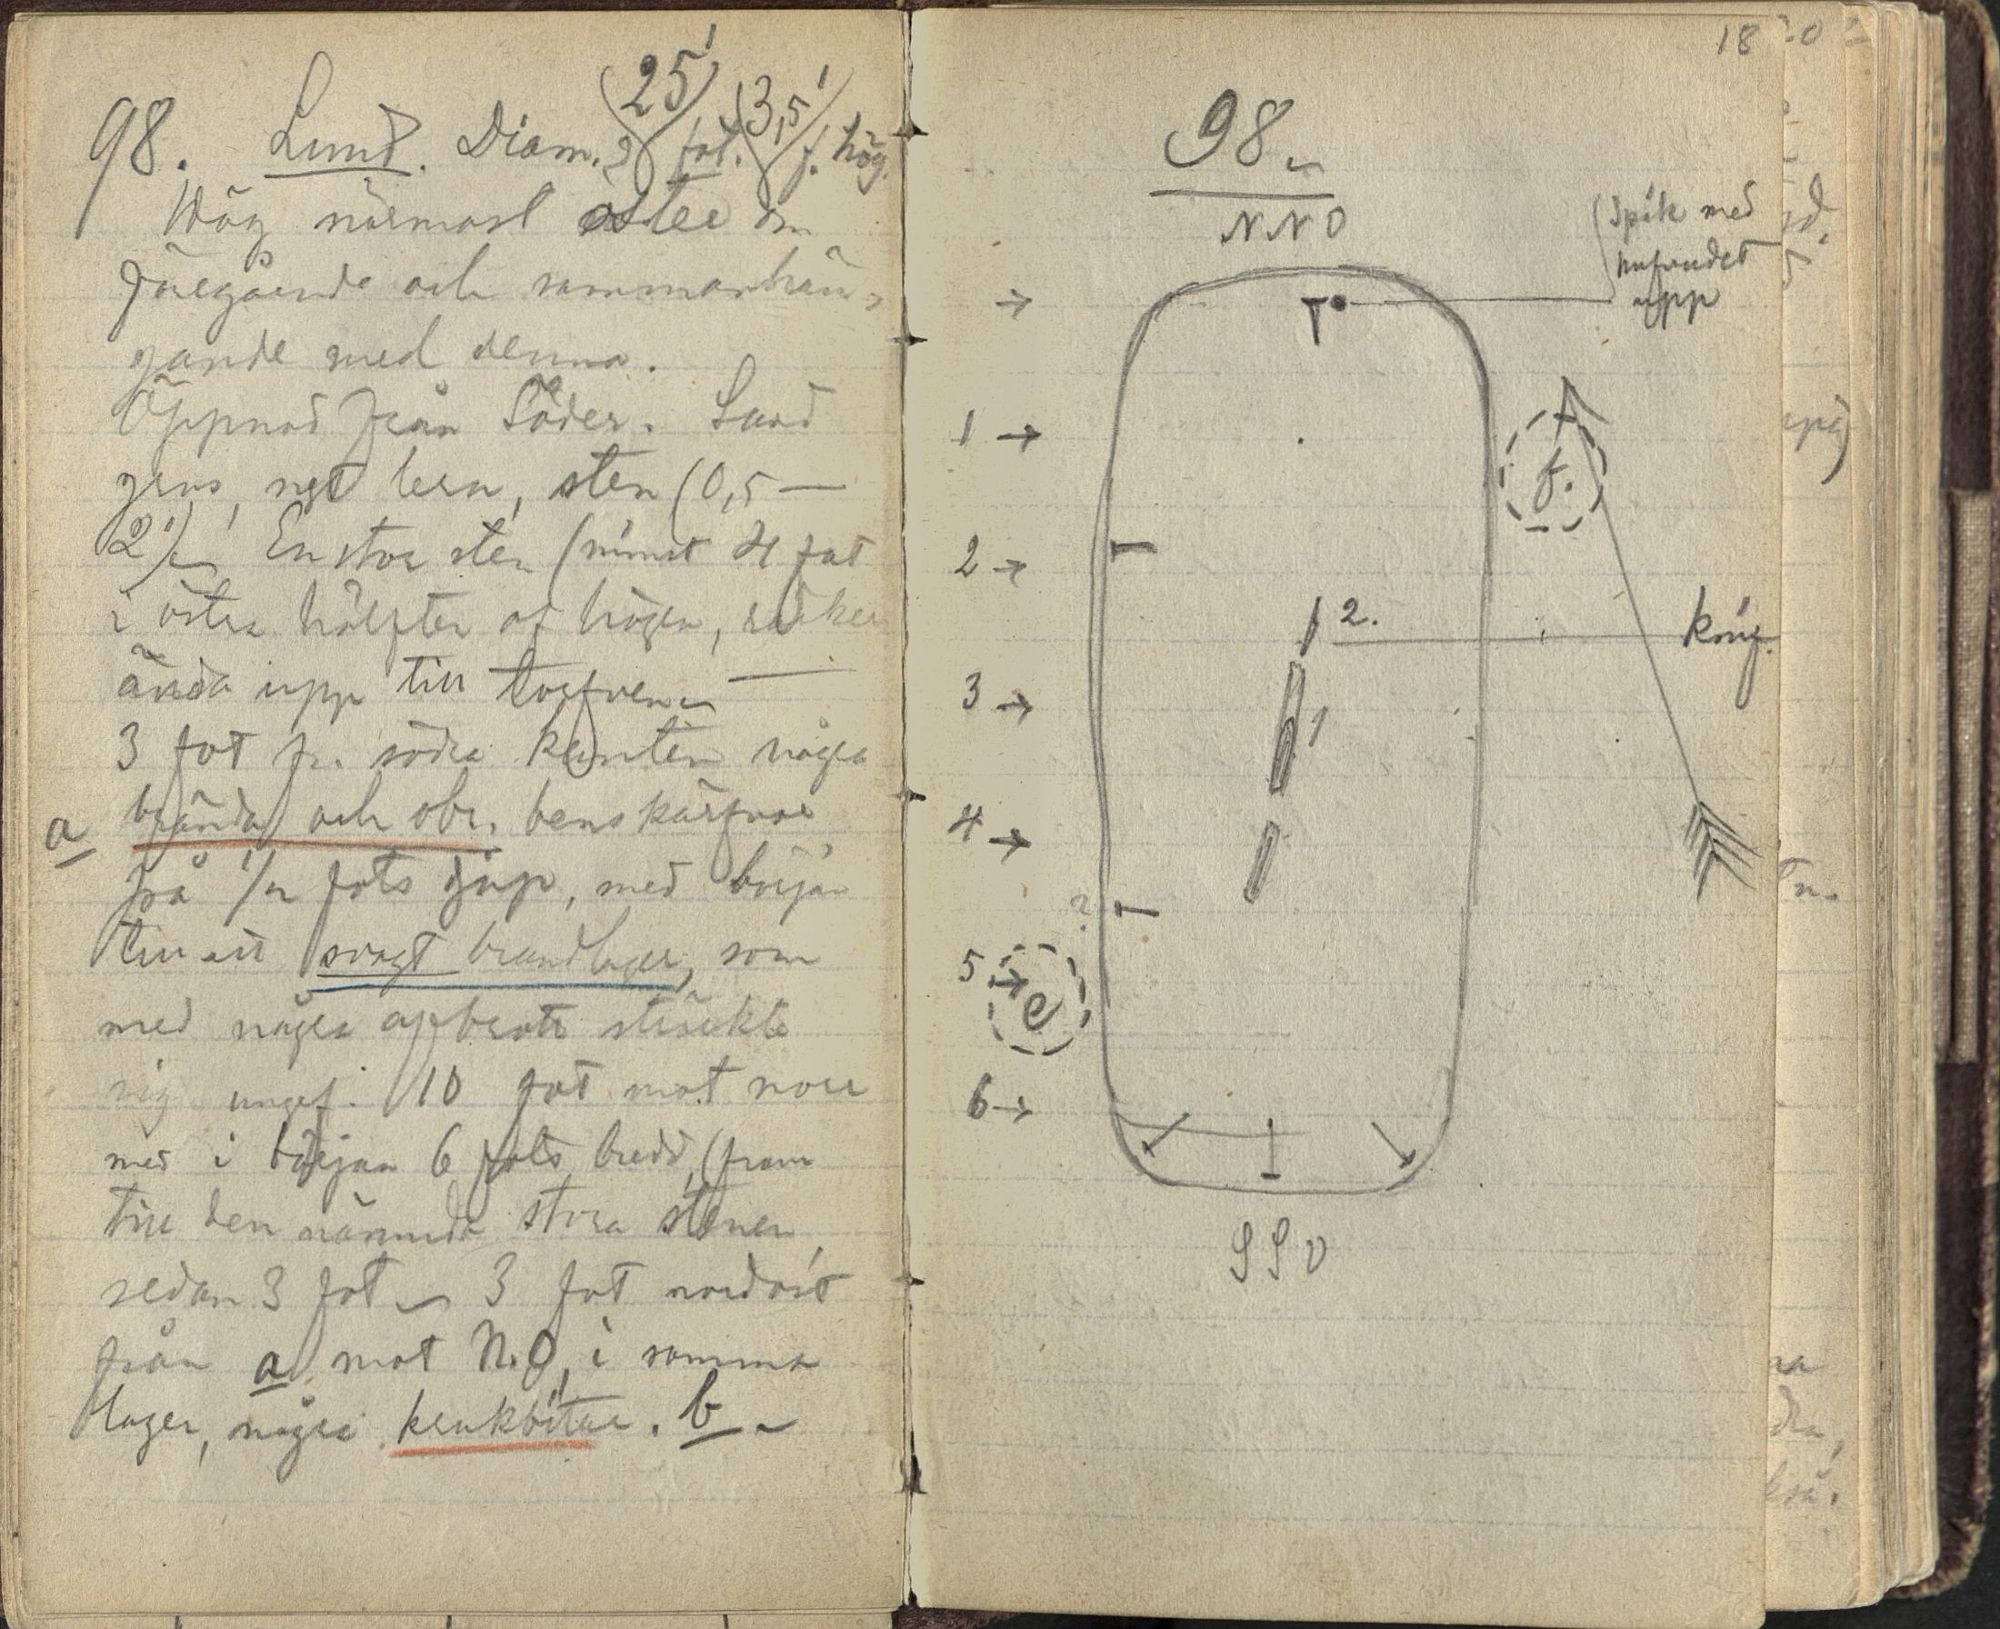 98. Lund. Diam. 25' fot. 3,5' f. hög.
Hög närmast öster om
föregående och sammanhän-
gande med denna.
Öppnad från Söder. Sand
grus, ngt lera, sten (0,5 —
2'). En stor sten (minst 4 fot
i östra hälften af högen, räcker
ända upp till torfven. —
3 fot fr. södra kanten några
a brända och obr. benskärfvor
på 1/2 fots djup, med början
till ett svagt brandlager, som
med några afbrott sträckte
sig ungef. 10 fot mot norr
med i början 6 fots bredd, (fram
till den nämnda stora stenen,
sedan 3 fot. 3 fot nordost
från a mot N.O, i samma
lager, några krukbitar. b
18 20
98.
NNO
Spik med
hufvudet
upp
1
f.
2
2.
knif.
3
1
4
?
5
e
6
SSV